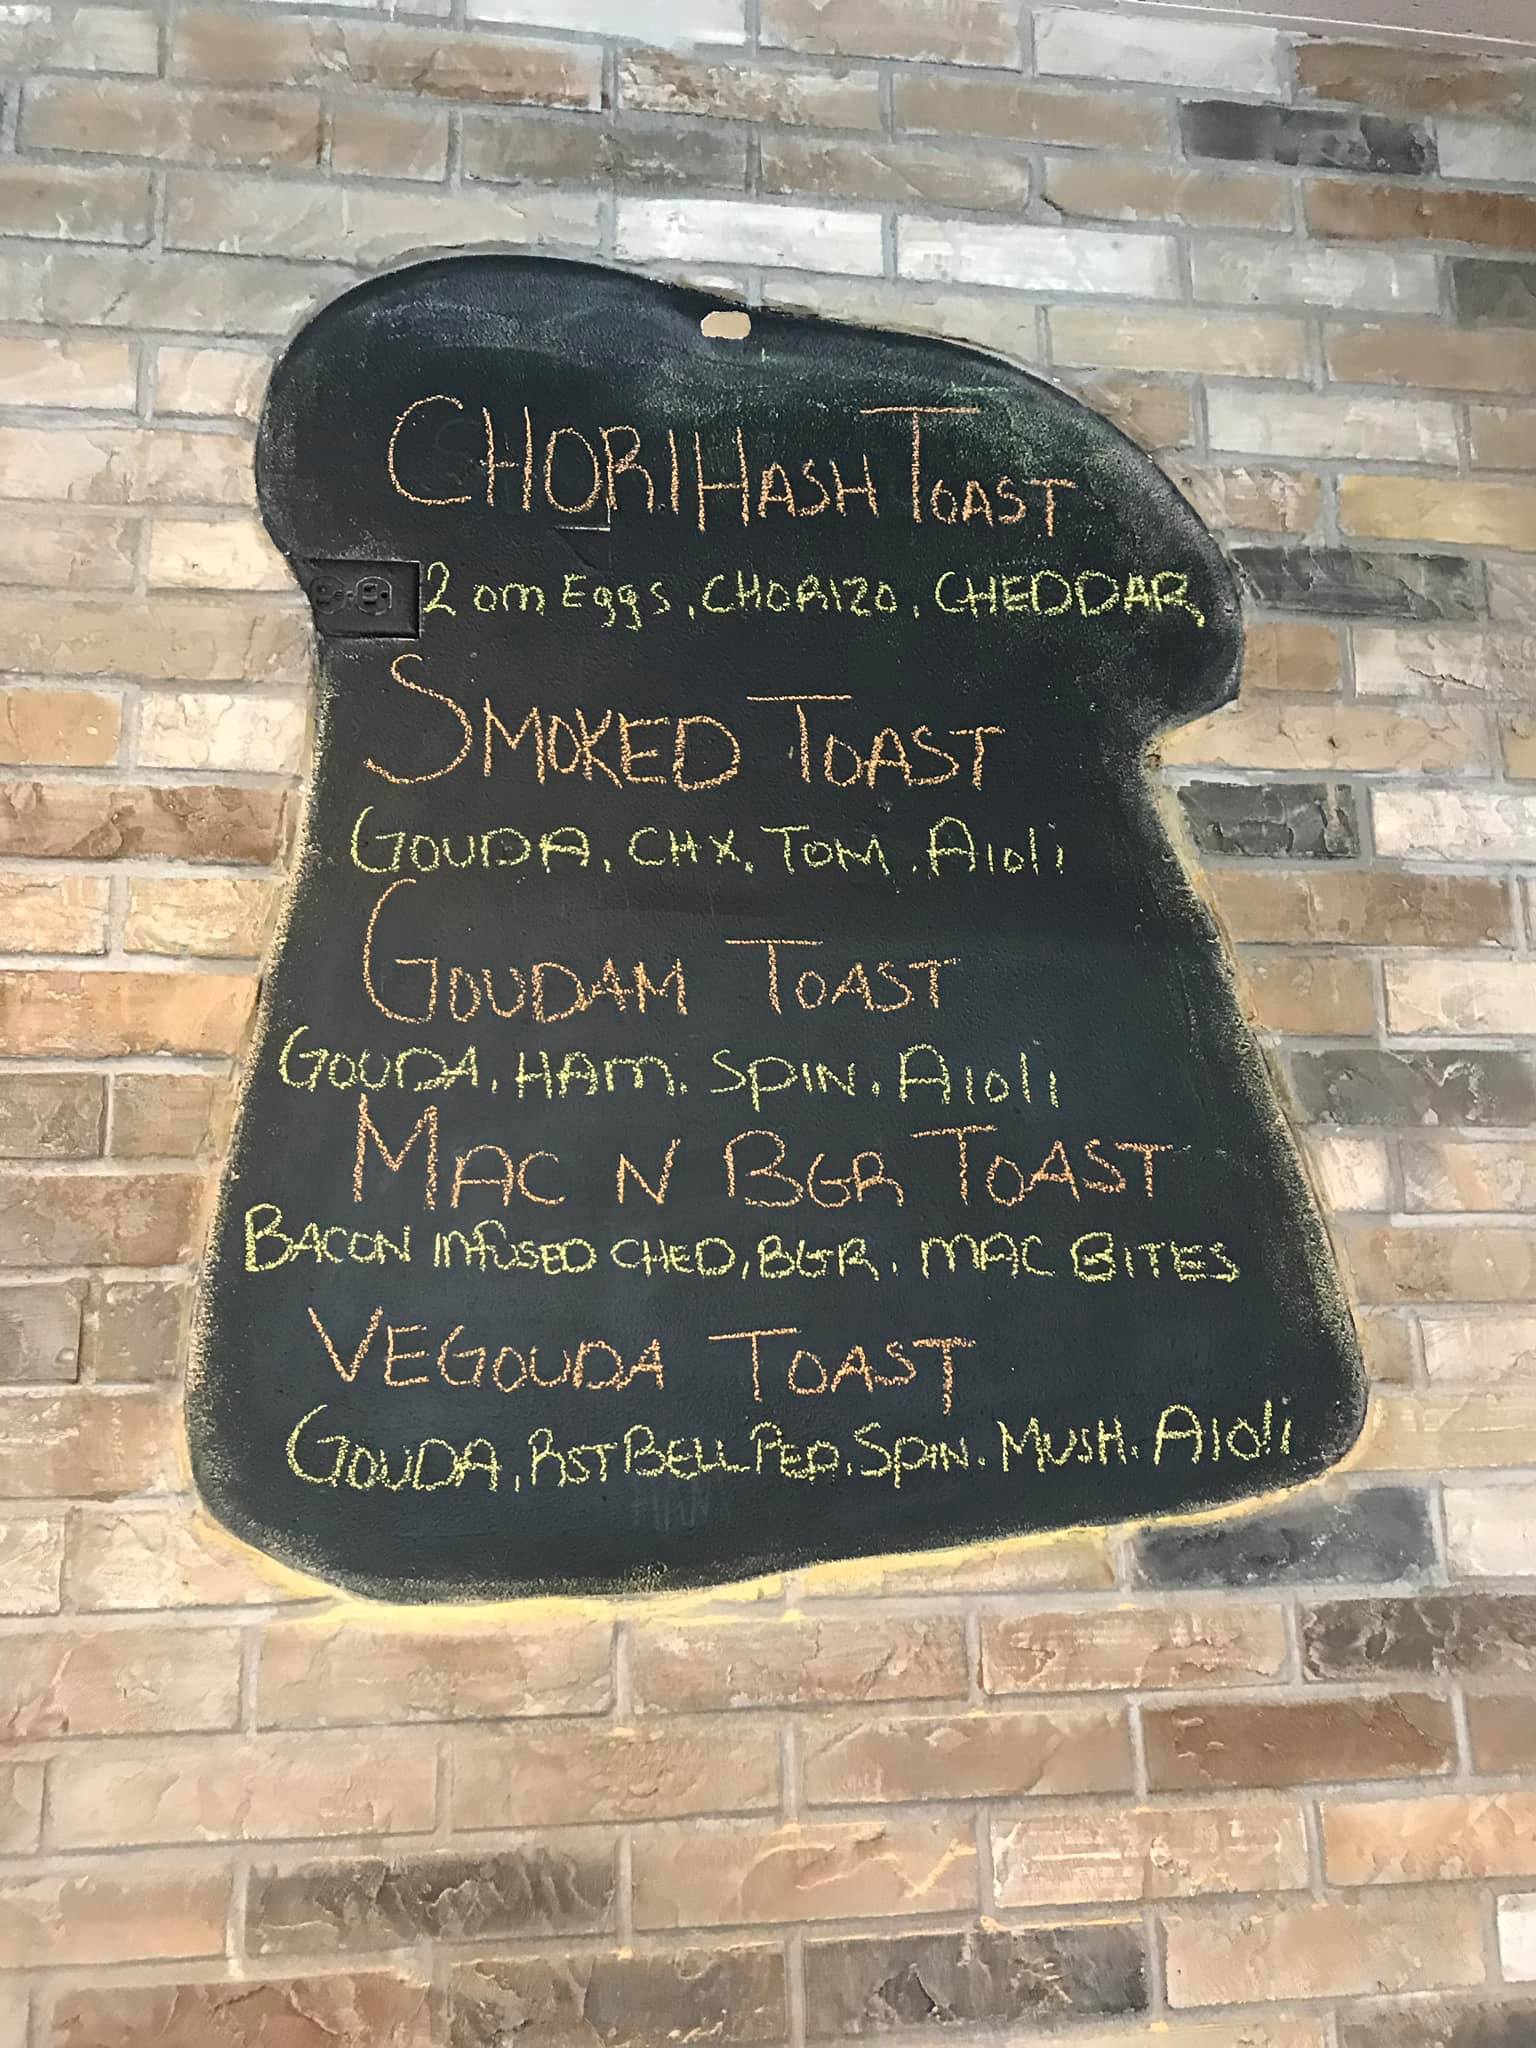 CHORIHASH TOAST
2 om Eggs, CHORIZO, CHEDDAR
SMOKED TOAST
GOUDA, CHX, TOM, Aioli
GOUDAM TOAST
GOUDA, HAM, SPIN, Aioli
MAC N BGR TOAST
BACON INFUSED CHED, BGR, MAC BITES
VEGOUDA TOAST
GOUDA, RST BELL PEP, SPIN, MUSH, Aioli